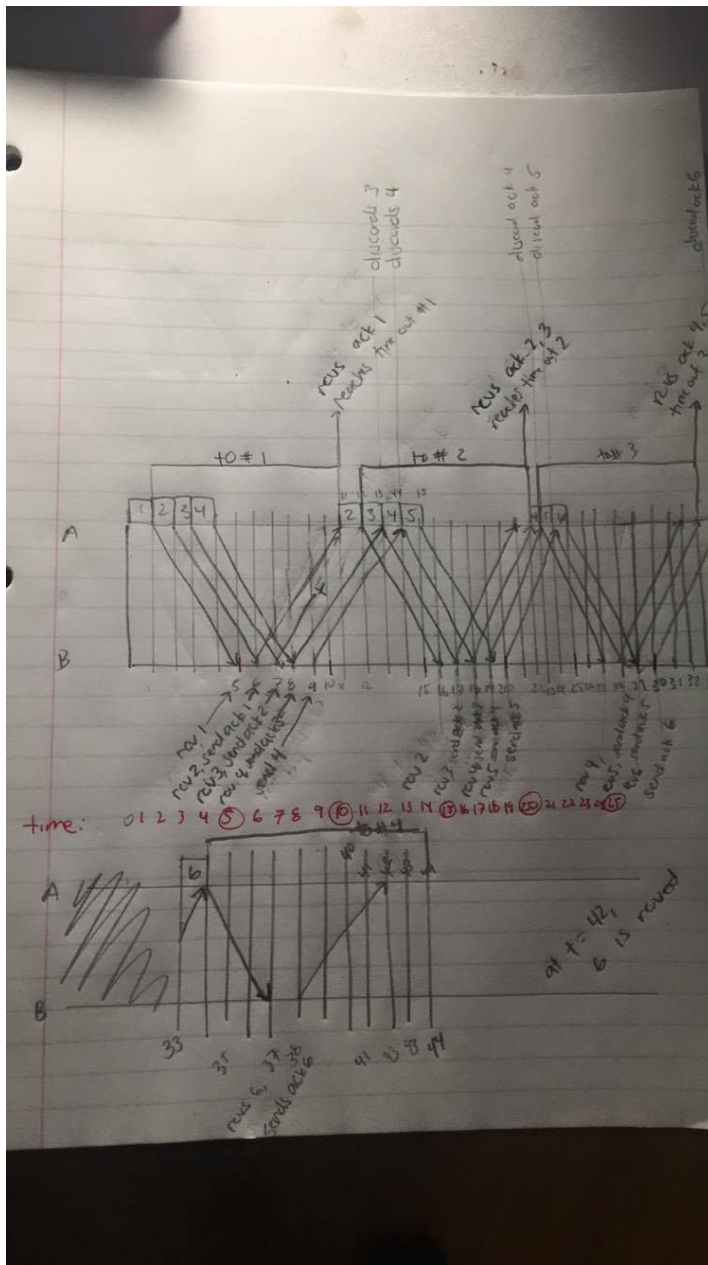 discards 3
discards 4
discard ack 4
discard ack 5
discard ack 6
recvs ack 1
reaches time out #1
recvs ack 2, 3
reaches time out 2
recvs ack 4,
time out 3
to #1
to #2
to# 3
1 2 3 4
11 13 14 15
2 3 4 5
A
X
B
5 6 7 8 9 10 11 12 15 16 17 18 19 20
30 31 32
rcv 1
rcv 2, send ack 1
rcv 3, send ack 2
rcv 4, send ack 3
send 4
rcv 2
rcv 3, send ack 2
rcv 4, send ack 3
rcv 5, send ack 4
send ack 5
rcv 4,
rcv 5, send ack 4
rcv 6, send ack 5
send ack 6
time: 0 1 2 3 4 5 6 7 8 9 10 11 12 13 14 15 16 17 18 19 20 21 22 23 24 25
40 41
A
6
at t = 42,
6 is
B
33 35 37 38 41 43 44
recvs 6,
sends ack 6